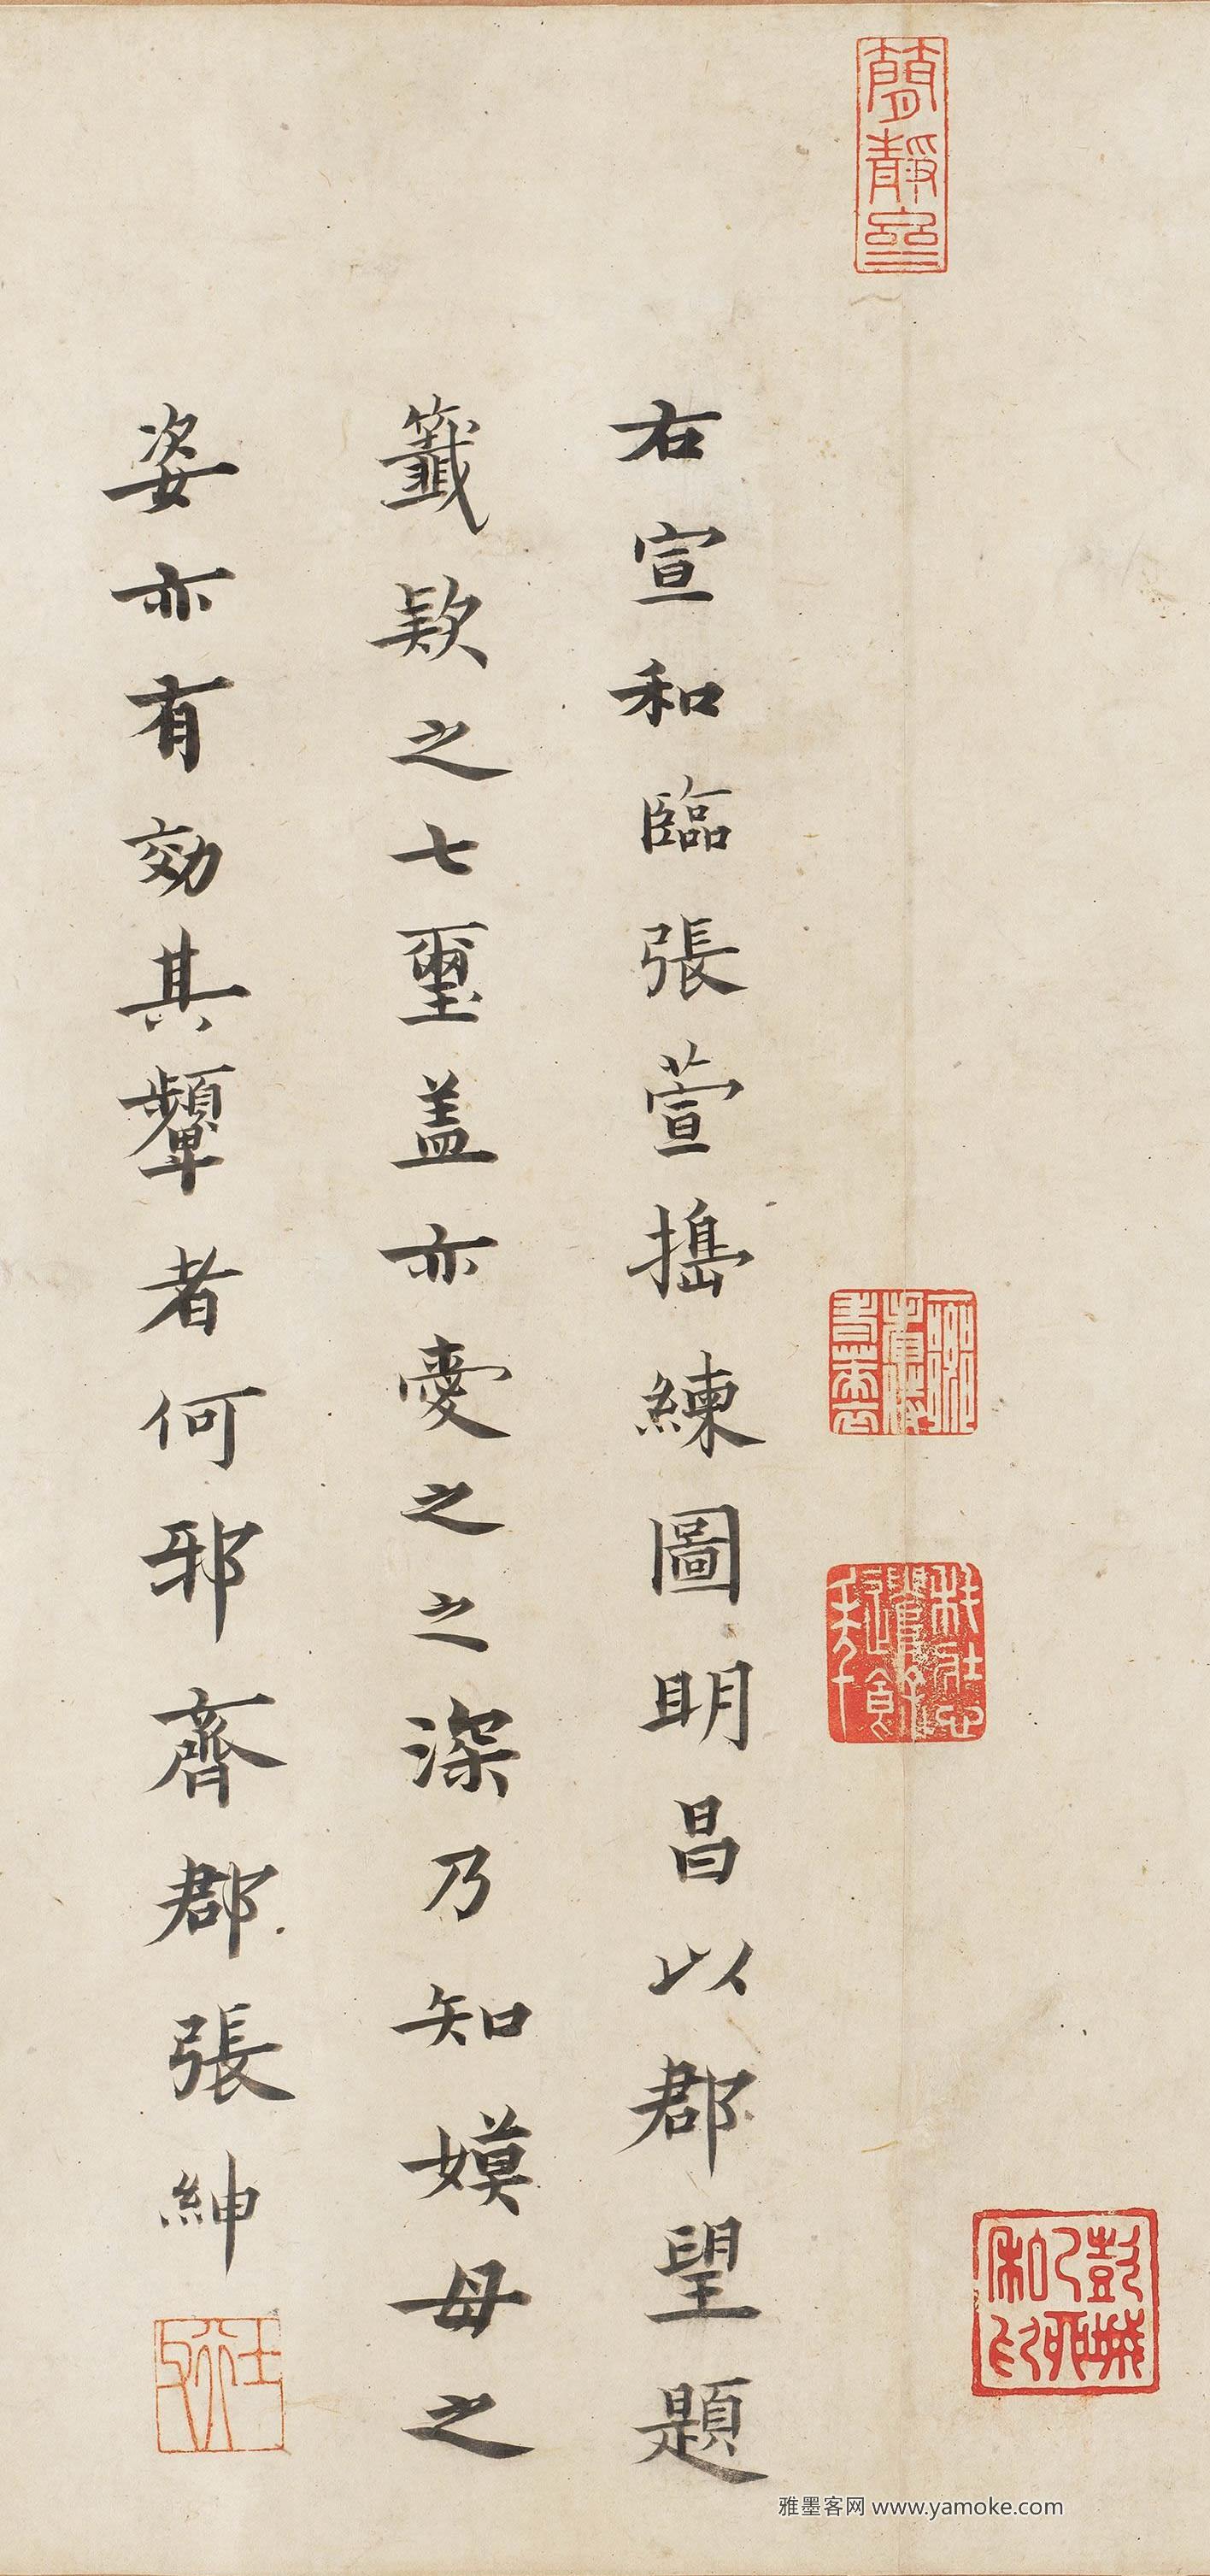 右宣和臨張萱搗練圖明昌以郡望題
籤欵之七璽盖亦愛之之深乃知嫫母之
姿亦有効其顰者何邪齊郡張紳
簡靜齋
士行父
雅墨客网 www.yamoke.com